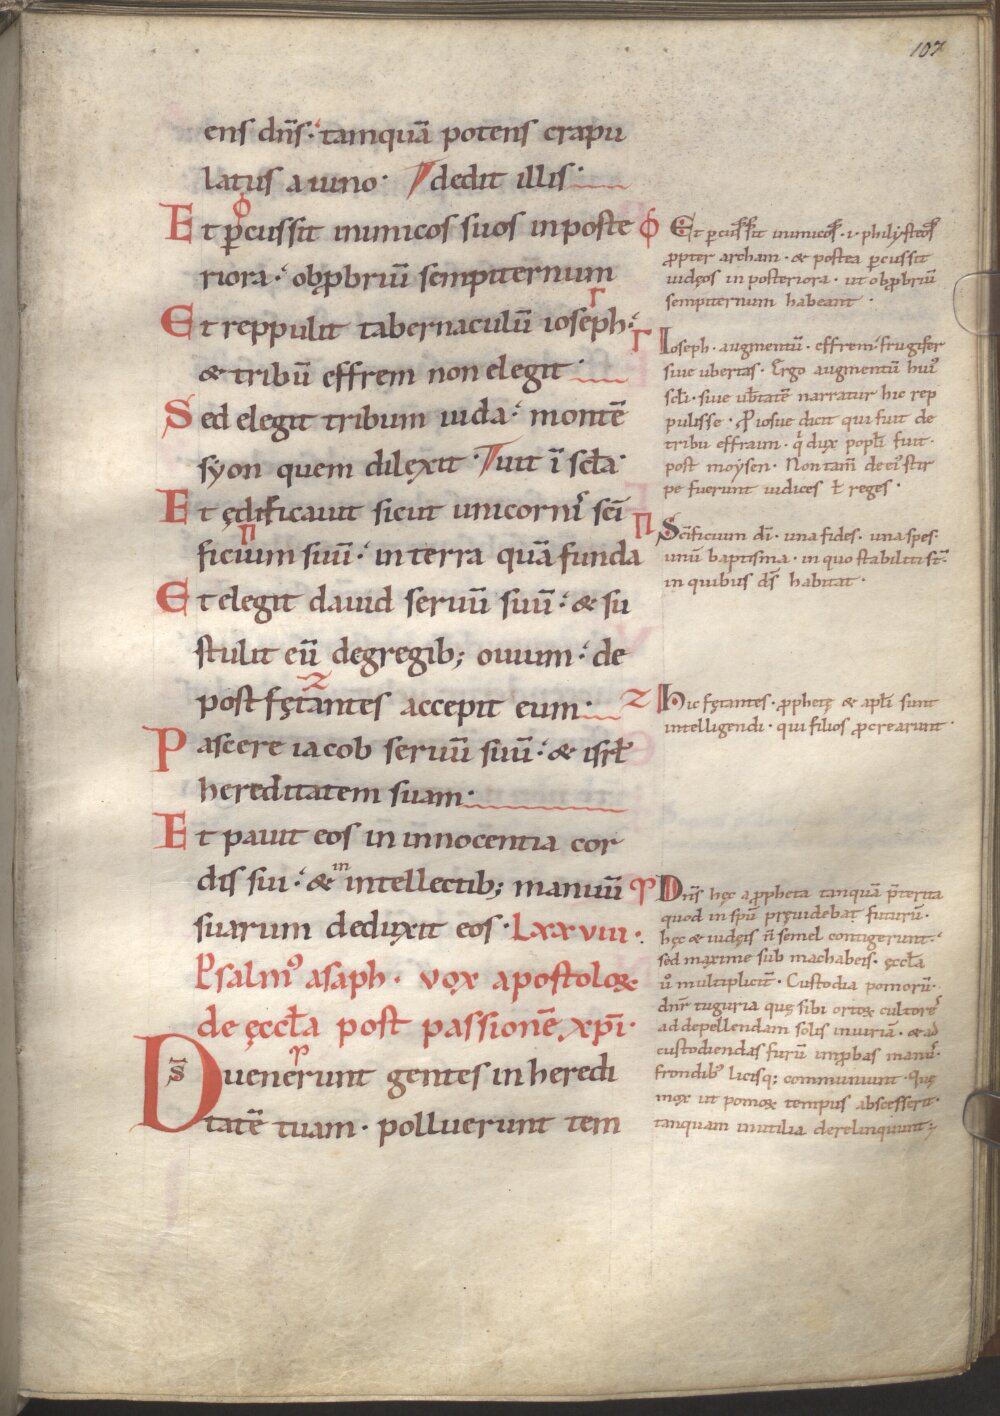 107
ens dn̄s · tamquā potens crapu
latus a uino · dedit illis ·
Et ꝑcussit inimicos suos in poste
riora · obꝓbriū sempiternum
Et reppulit tabernaculū ioseph ·
& tribū effrem non elegit ·
Sed elegit tribum iuda · montē
syon quem dilęxit
Et ędificauit sicut unicorni᷒ sc̄i
ficium siuū · in terra quā funda
Et elegit dauid seruū suū · & su
stulit eū degregib; ouium · de
post fętantes accepit eum ·
Pascere iacob seruū suū · & isrł
hereditatem suam ·
Et pauit eos in innocentia cor
dis sui · & in intellectib; manuū
suarum deduxit eos · Lxxviii ·
Psalm᷒ asaph · vox apostoloꝝ
de ęccła post passionē xp̄i ·
Ds̄ uenerunt gentes in heredi
tatē tuam · polluerunt tem
φ Et ꝑcussit inimicos · i · phılysteos
ꝓpter archam · & postea ꝑcussit
iudęos in posteriora · ut obꝓbriū
sempiternum habeant ·
Γ Ioseph · augmentū · effrem · frugifer
siue ubertas · Ergo augmentū hui᷒
scłi · siue ubtatē narratur hic rep
pulisse · P iosue dicit qui fuit de
tribu effraim · q dux popłi fuit ·
post moysen · Non tam̄ de ei᷒ stir
pe fuerunt iudices ł reges ·
Π Sc̄ificium dī · una fides · una spes ·
unū baptisma · in quo stabiliti st̄ ·
in quibus ds̄ habitat ·
Z Hic fętantes · ꝓphetę & apłi sunt
intelligendi · qui filios ꝓcrearunt ·
Dn̄s hęc a ꝓpheta tanquā p̄terita
quod in spū pręuidebat futurū ·
hęc & iudęis n̄ semel contigerunt ·
sed maxime sub machabeis · ęccła
u̇ multiplicit̄ · Custodia pomorū ·
dn̄r tuguria quę sibi ortoꝝ cultore᷒
ad depellendam solis iniuriā · & ad
custodiendas furū imꝓbas manu᷒ ·
frondib᷒ licisq; communiunt · quę
mox ut pomoꝝ tempus abscesserit ·
tanquam inutilia derelinquunt ;